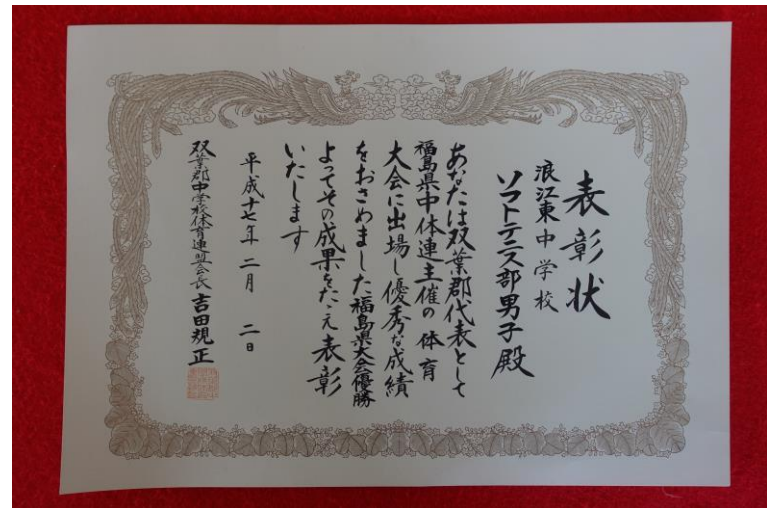 表彰状
浪江東中学校
ソフトテニス部男子殿
あなたは双葉郡代表として
福島県中体連主催の体育
大会に出場し優秀な成績
をおさめました福島県大会優勝
よってその成果をたゝえ表彰
いたします
平成十七年二月二日
双葉郡中学校体育連盟会長吉田規正